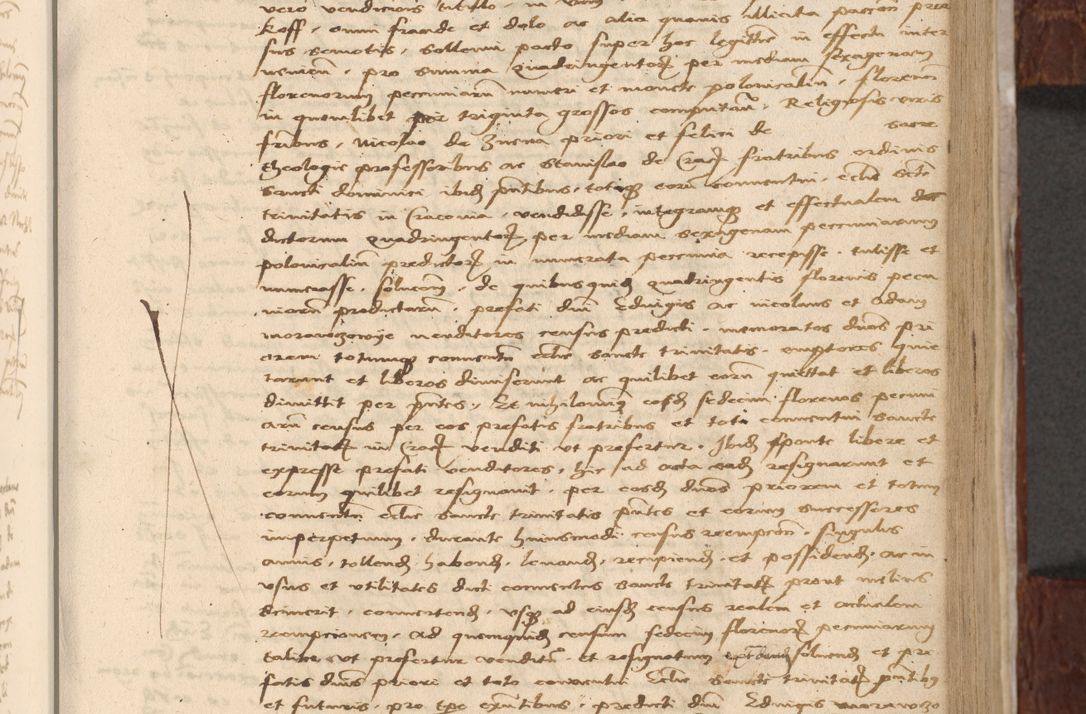 vero vendicionis titulo, in
koff, omni fraude et dolo ac alia quavis illicita
sus semotis, sollenni pacto super hoc legittime in effectu inter
venien, pro summa quadringentorz per mediam sexagenam
florenorum pecuniarum numeri et monete polonicalium, florenum
in quemlibet per triginta grossos computan. Religiosis viris
fribus, Nicolao de Znena priori et felici de sacre
theologie professoribus ac Stanislao de Crac fratribus ordinis
sancti dominici ibid pntibus, totiqz eorum conventui, ecclie scte
trinitatis in Cracovia, vendidisse, integramqz et effectualem
dictorum quadringentorz per mediam sexagenam pecuniarum
polonicalium predictorz in numerata pecunia recepisse, tulisse et
numerasse, solucionem, de quibusquid quadringentis florenis pecu
niarum predictarum, prefati dni Edvigis ac nicolaus et Adam
morawczowije venditores census predicti, memoratos dnos pri
orem totumqz conventum ecclie sancte trinitatis, emptores quie
tarunt et liberos dimiserunt ac quilibet eorum quiettat et liberos
dimittit per pntes. Et nihilominus eosd sedecim florenos pecuni
arum census per eos prefatis fratribus et toti conventui sancte
trinitatis in Crac venditi ut prefertur. Ibid sponte libere et
expresse prefati venditores, hic ad acta ead resignarunt et
eorum quilibet resignavit, per eosd dnos priorem et totum
conventum ecclie sancte trinitatis pntes et eorum successores
imperpetuum, durante huiusmodi census reempcion, singulis
annis, tollend, habend, levand, recipiend, et possidend, ac in
usus et utilitates dicti conventus sancte trinitatis prout melius
sciverit, convertend, usqz ad eiusd census realem et actualem
reempcionem, Ad quemquid censum sedecim florenorz pecuniarum
talium ut prefertur venditum, et resignatum solvend et pre
fatis dnis priori et toto conventui Ecclie Sancte trinitatis pntibus
et futuris, pro tpe exntibus, predicti dni Edvigis morawczo